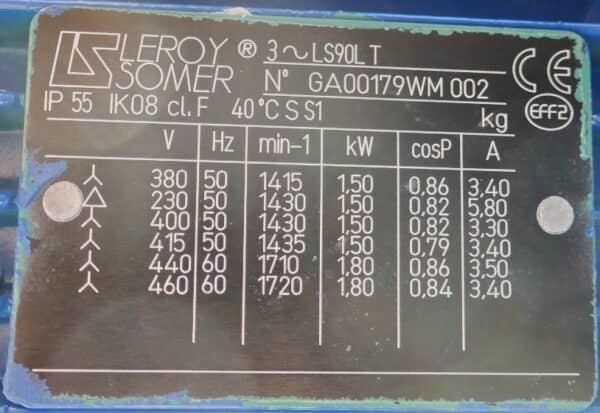 LEROY ® 3 ~ LS90L T
SOMER N° GA00179WM 002 CE
IP 55 IK08 cl.F 40°C S S1 kg EFF2
V Hz min-1 kW cosP A
380 50 1415 1,50 0,86 3,40
230 50 1430 1,50 0,82 5,80
400 50 1430 1,50 0,82 3,30
415 50 1435 1,50 0,79 3,40
440 60 1710 1,80 0,86 3,50
460 60 1720 1,80 0,84 3,40